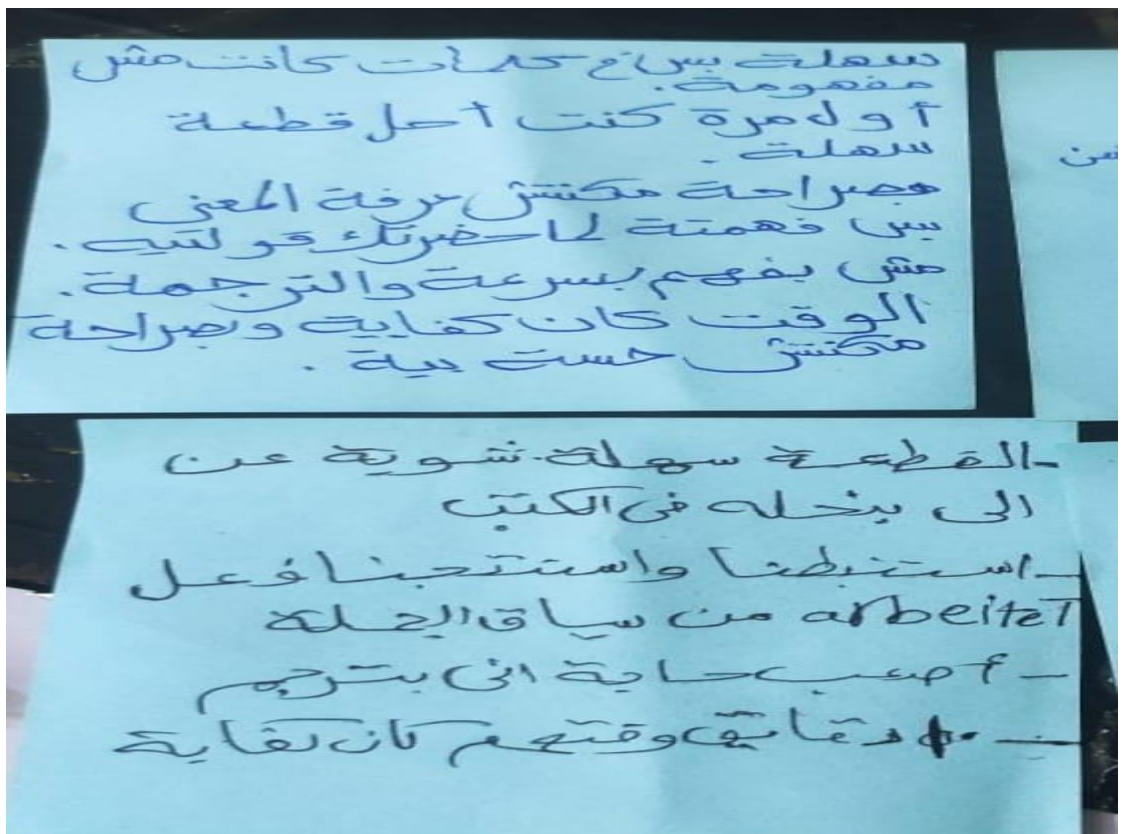 سهلة بس في كلمات كانت مش
مفهومة.
أول مرة كنت أحل قطعة
سهلة.
بصراحة مكنتش عرفة المعنى
بس فهمتة لما حضرتك قولتيه.
مش بفهم بسرعة والترجمة.
الوقت كان كفاية وبصراحة
مكنتش حست بية.
- القطعة سهلة شوية عن
الى بنحله فى الكتب
- استنبطنا واستنتجنا فعل
arbeitet من سياق الجملة
- أصعب حاية انى بترجم
- 10 دقايق وقتهم كان كفاية